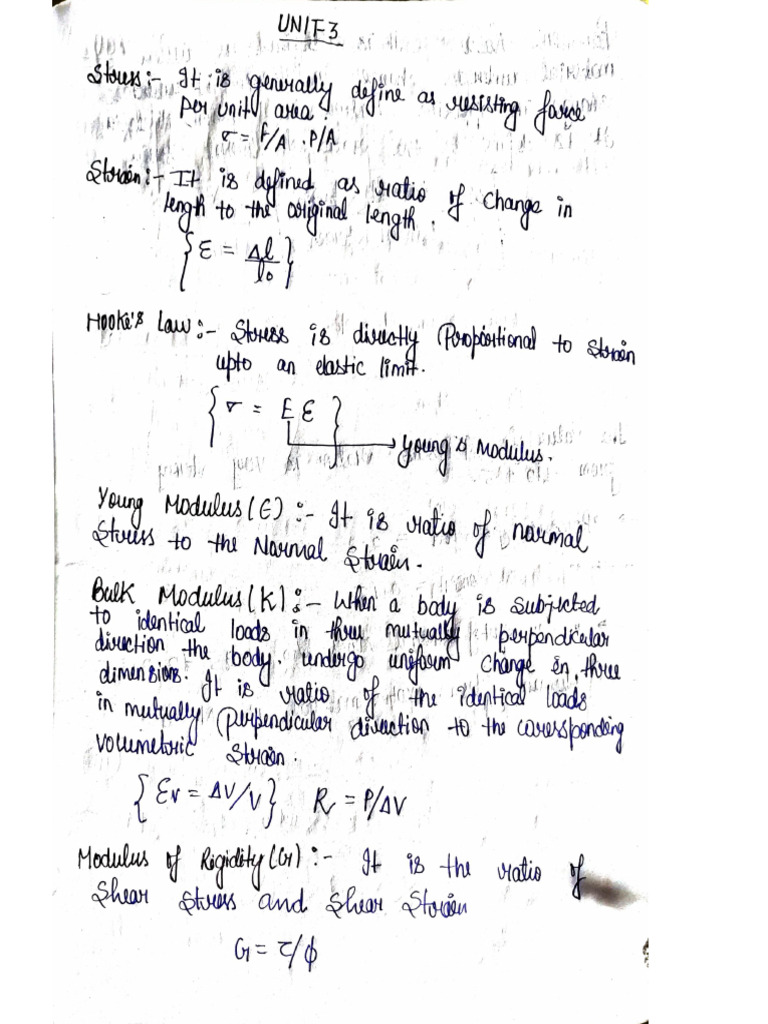 UNIT-3
Stress:- It is generally define as resisting force
per unit area.
σ = F/A . P/A
Strain:- It is defined as ratio of change in
length to the original length.
{ε = Δl/l₀}
Hooke's Law:- Stress is directly Proportional to Strain
upto an elastic limit.
{σ = E ε}
Young's Modulus.
Young Modulus (E) :- It is ratio of normal
Stress to the Normal Strain.
Bulk Modulus (K) :- When a body is subjected
to identical loads in three mutually perpendicular
direction the body. undergo uniform change in three
dimensions. It is ratio of the identical loads
in mutually perpendicular direction to the corresponding
volumetric Strain.
{Ev = ΔV/V} R = P/ΔV
Modulus of Rigidity (G) :- It is the ratio of
Shear Stress and Shear Strain
G = τ/ϕ